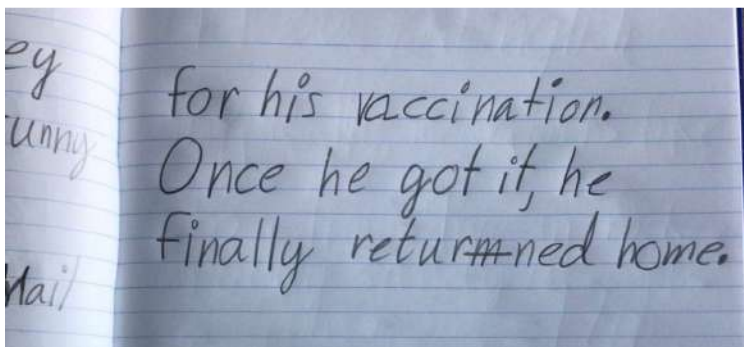 for his vaccination.
Once he got it, he
finally returned home.